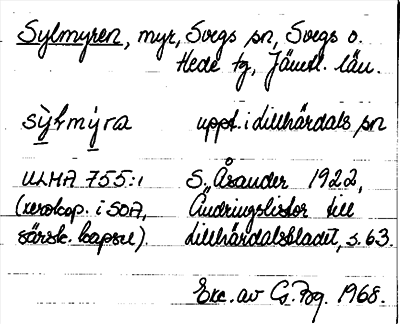 Sylmyren, myr, Svegs sn, Svegs o.
Hede tg, Jämtl. län.
sỳlmýra uppt. i Lillhärdals sn
ULMA 755:1 S. Åsander 1922,
(xerokop. i SOA, Ändringslistor till
särsk. kapsel). Lillhärdalsbladet, s. 63.
Exc. av G. Bg. 1968.